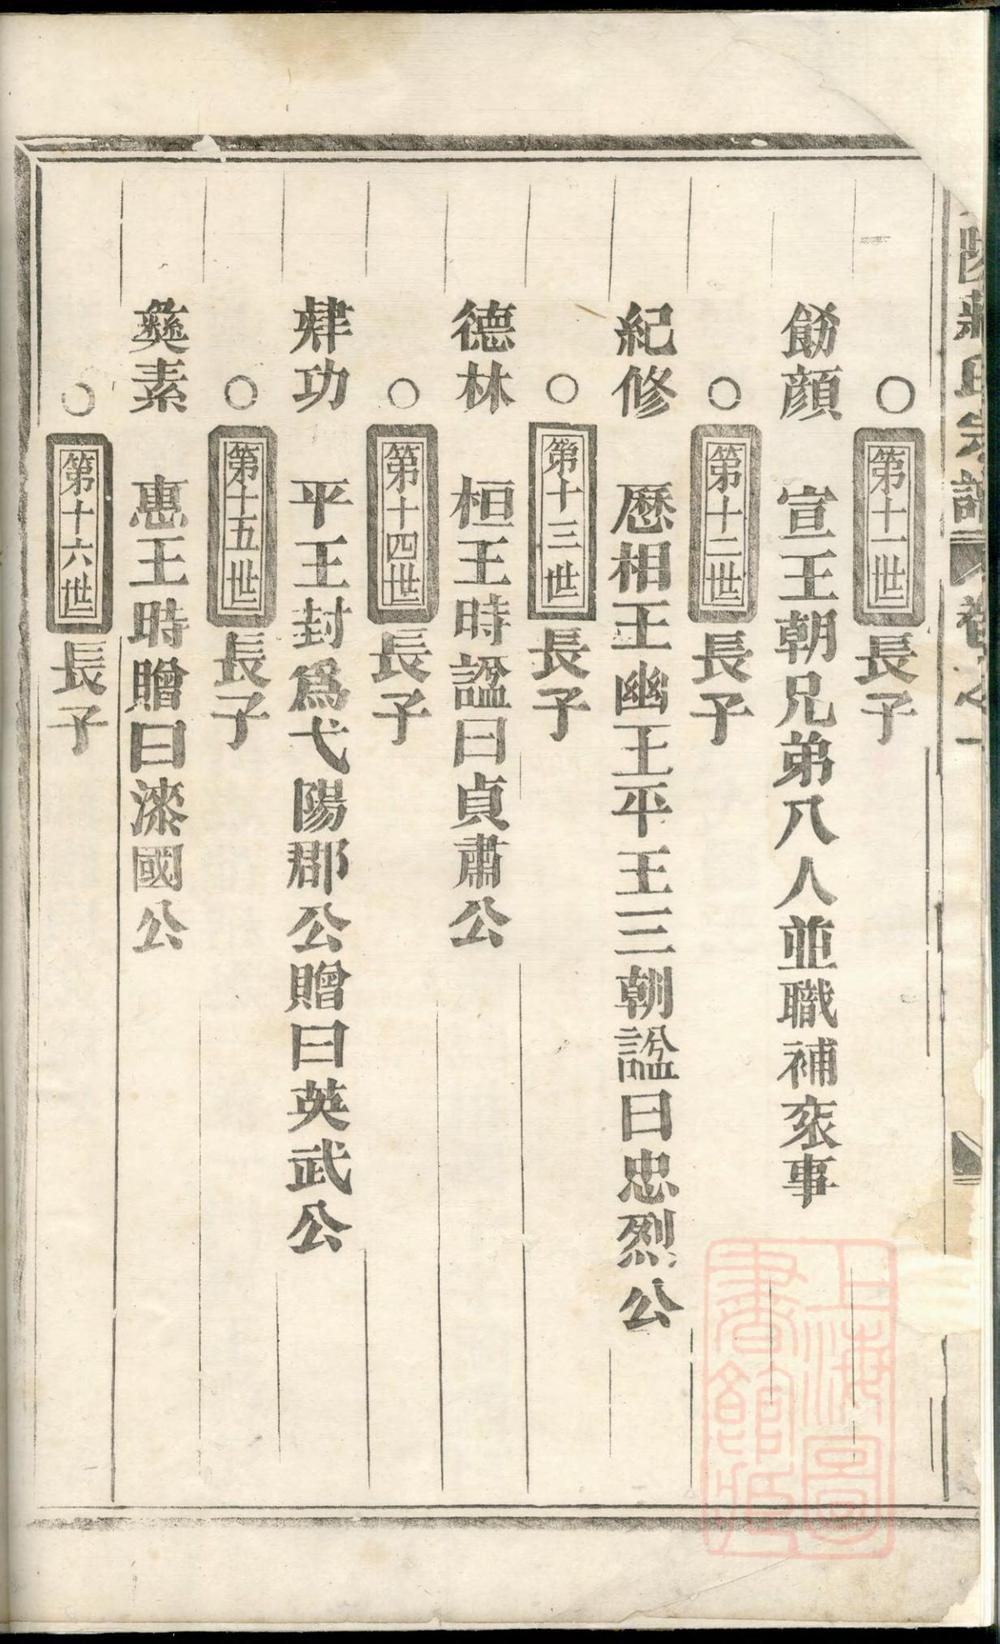 蔣氏宗譜 卷之一
○第十一世長子
飭顏 宣王朝兄弟八人並職補衮事
○第十二世長子
紀修 歷相王幽王平王三朝諡曰忠烈公
○第十三世長子
德林 桓王時諡曰貞肅公
○第十四世長子
肄功 平王封爲弋陽郡公贈曰英武公
○第十五世長子
彝素 惠王時贈曰漆國公
○第十六世長子
上海圖書館藏